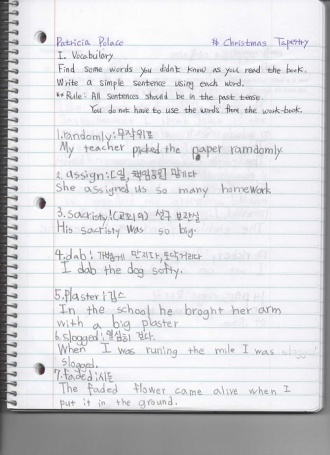 Patricia Polaco # Christmas Tapestry
I. Vocabulary
Find some words you didn't know as you read the book.
Write a simple sentence using each word.
** Rule: All sentences should be in the past tense.
You do not have to use the words from the work-book.
1. randomly: 무작위로
My teacher picked the paper ramdomly.
2. assign: 맡기다
She assigned us so many homework
3. sacristy: (교회의) 성구 보관실
His sacristy was so big.
4. dab: 가볍게 만지다, 토닥거리다
I dab the dog softy.
5. plaster: 깁스
In the school he broght her arm
with a big plaster
6. slogged: 열심히 하다.
When I was runing the mile I was
slogged.
7. faded: 시든
The faded flower came alive when I
put it in the ground.